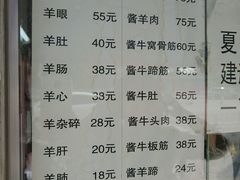 羊眼 55元 酱羊肉 75元
羊肚 40元 酱牛窝骨筋 60元
羊肠 38元 酱牛蹄筋 56元
羊心 33元 酱牛肚 56元
羊杂碎 28元 酱牛头肉 38元
羊肝 20元 酱牛板筋 38元
羊肺 18元 酱羊蹄 24元
夏
建